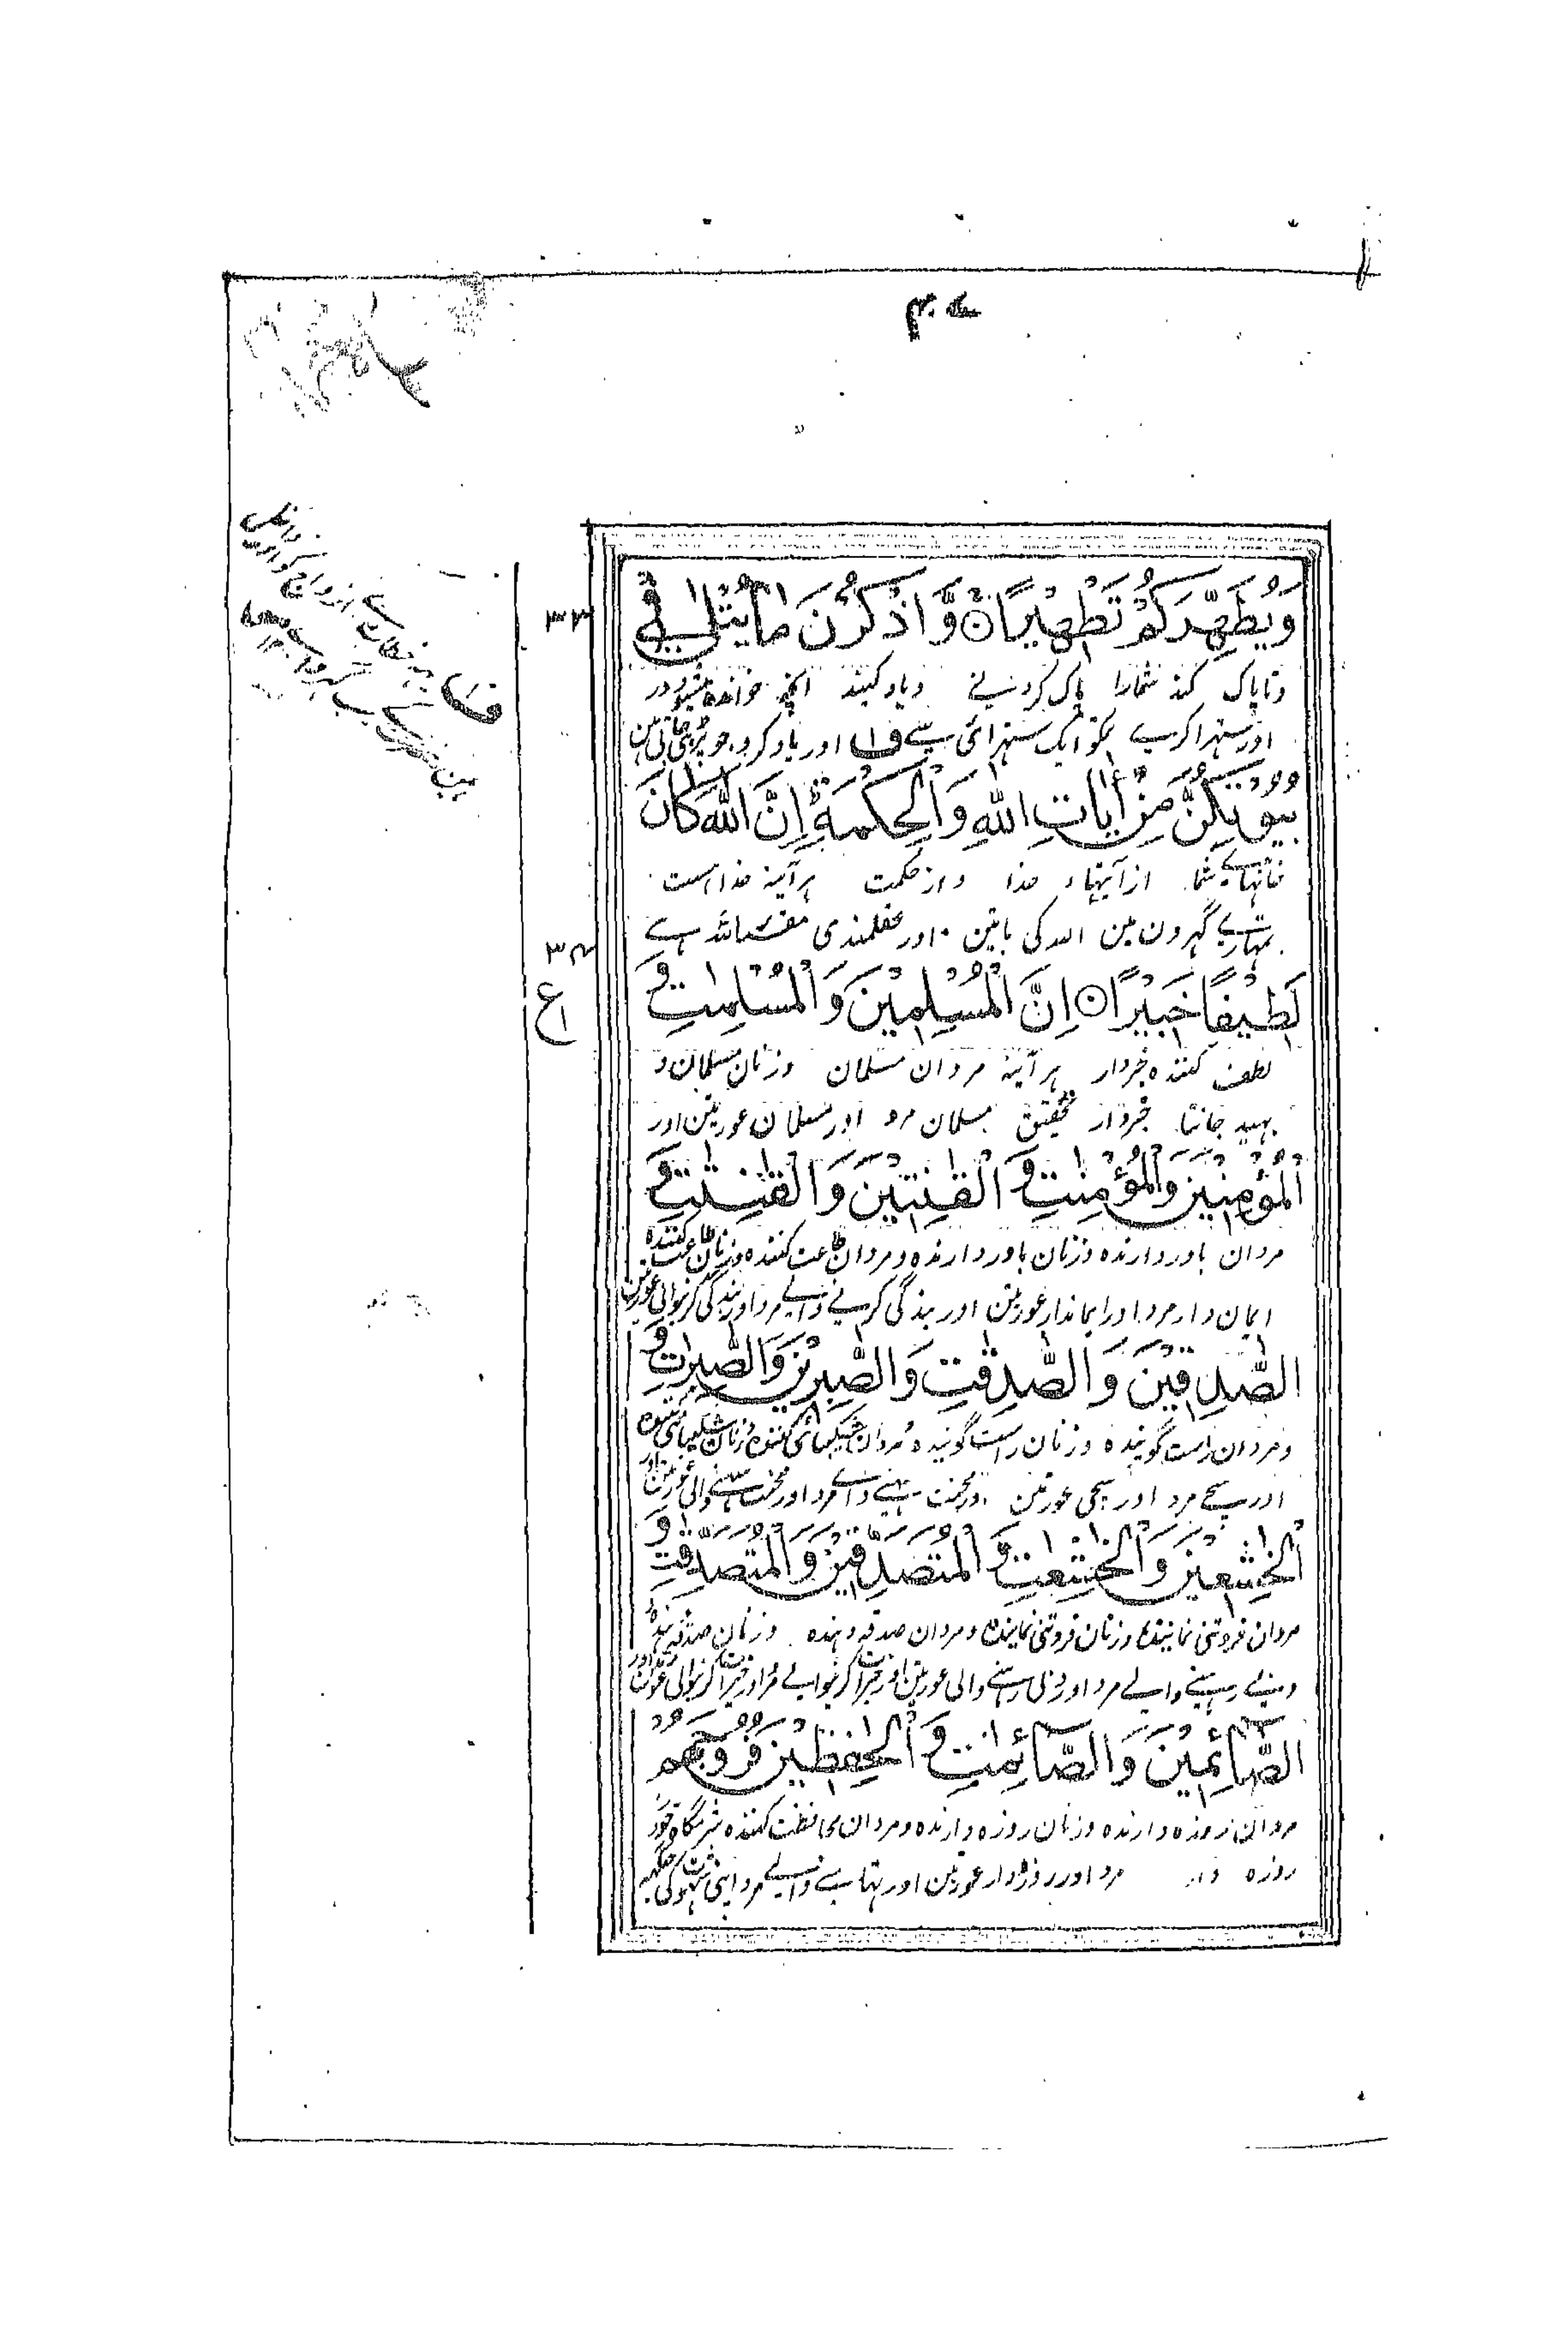 وَيُطَهِّرَكُمْ تَطْهِيْرًا ۝ وَّ اذْكُرْنَ مَا يُتْلٰى فِيْ
۳۳
وتا پاک کند شمارا پاک کردنے ویاد کنید آنچہ خوانده میشود در
اور ستہرا کرے تمکو ایک ستہرائی سے ف۱ اور یاد کرو جو پڑہی جاتی ہین
بُيُوْتِكُنَّ مِنْ اٰيَاتِ اللّٰهِ وَالْحِكْمَةِ ۚ اِنَّ اللّٰهَ كَانَ
خانہائے شما از آیتہاء خدا واز حکمت ہر آئینہ خدا است
تمہارے گہرون مین اللہ کی باتین اور عقلمندی مقرر اللہ ہے
۳۴
لَطِيْفًا خَبِيْرًا ۝ اِنَّ الْمُسْلِمِيْنَ وَالْمُسْلِمٰتِ وَ
ع
لطف کننده خبردار ہر آئینہ مردان مسلمان وزنان مسلمان و
بہید جانتا خبردار تحقیق مسلمان مرد اور مسلمان عورتین اور
الْمُؤْمِنِيْنَ وَالْمُؤْمِنٰتِ وَ الْقٰنِتِيْنَ وَالْقٰنِتٰتِ وَ
مردان باور دارنده وزنان باور دارنده ومردان طاعت کننده وزنان طاعت کننده
ایمان دار مرد اور ایماندار عورتین اور بندگی کرنے والے مرد اور بندگی کرنیوالی عورتین
الصّٰدِقِيْنَ وَالصّٰدِقٰتِ وَالصّٰبِرِيْنَ وَالصّٰبِرٰتِ وَ
ومردان راست گوینده وزنان راست گوینده ومردان شکیبائی کننده وزنان شکیبائی کننده
اور سچے مرد اور سچی عورتین اور محنت سہنے والے مرد اور محنت سہنے والی عورتین اور
الْخٰشِعِيْنَ وَالْخٰشِعٰتِ وَ الْمُتَصَدِّقِيْنَ وَالْمُتَصَدِّقٰتِ وَ
مردان فروتنی نماینده وزنان فروتنی نماینده ومردان صدقہ دہنده وزنان صدقہ دہنده
دبے رہنے والے مرد اور دبی رہنے والی عورتین اور خیرات کرنیوالے مرد اور خیرات کرنیوالی عورتین اور
الصَّآئِمِيْنَ وَالصَّآئِمٰتِ وَ الْحٰفِظِيْنَ فُرُوْجَهُمْ
مردان روزه دارنده وزنان روزه دارنده ومردان محافظت کننده شرمگاه خود
روزه دار مرد اور روزه دار عورتین اور تہامنے والے مرد اپنی شہوت کی جگہہ